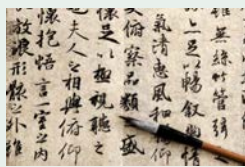 雖無絲竹管弦
足以暢叙幽
氣清惠風和暢仰
俯察品類盛
懷足以極視聽之
夫人之相與俯仰
懷抱悟言一室之內
放浪形骸之外雖